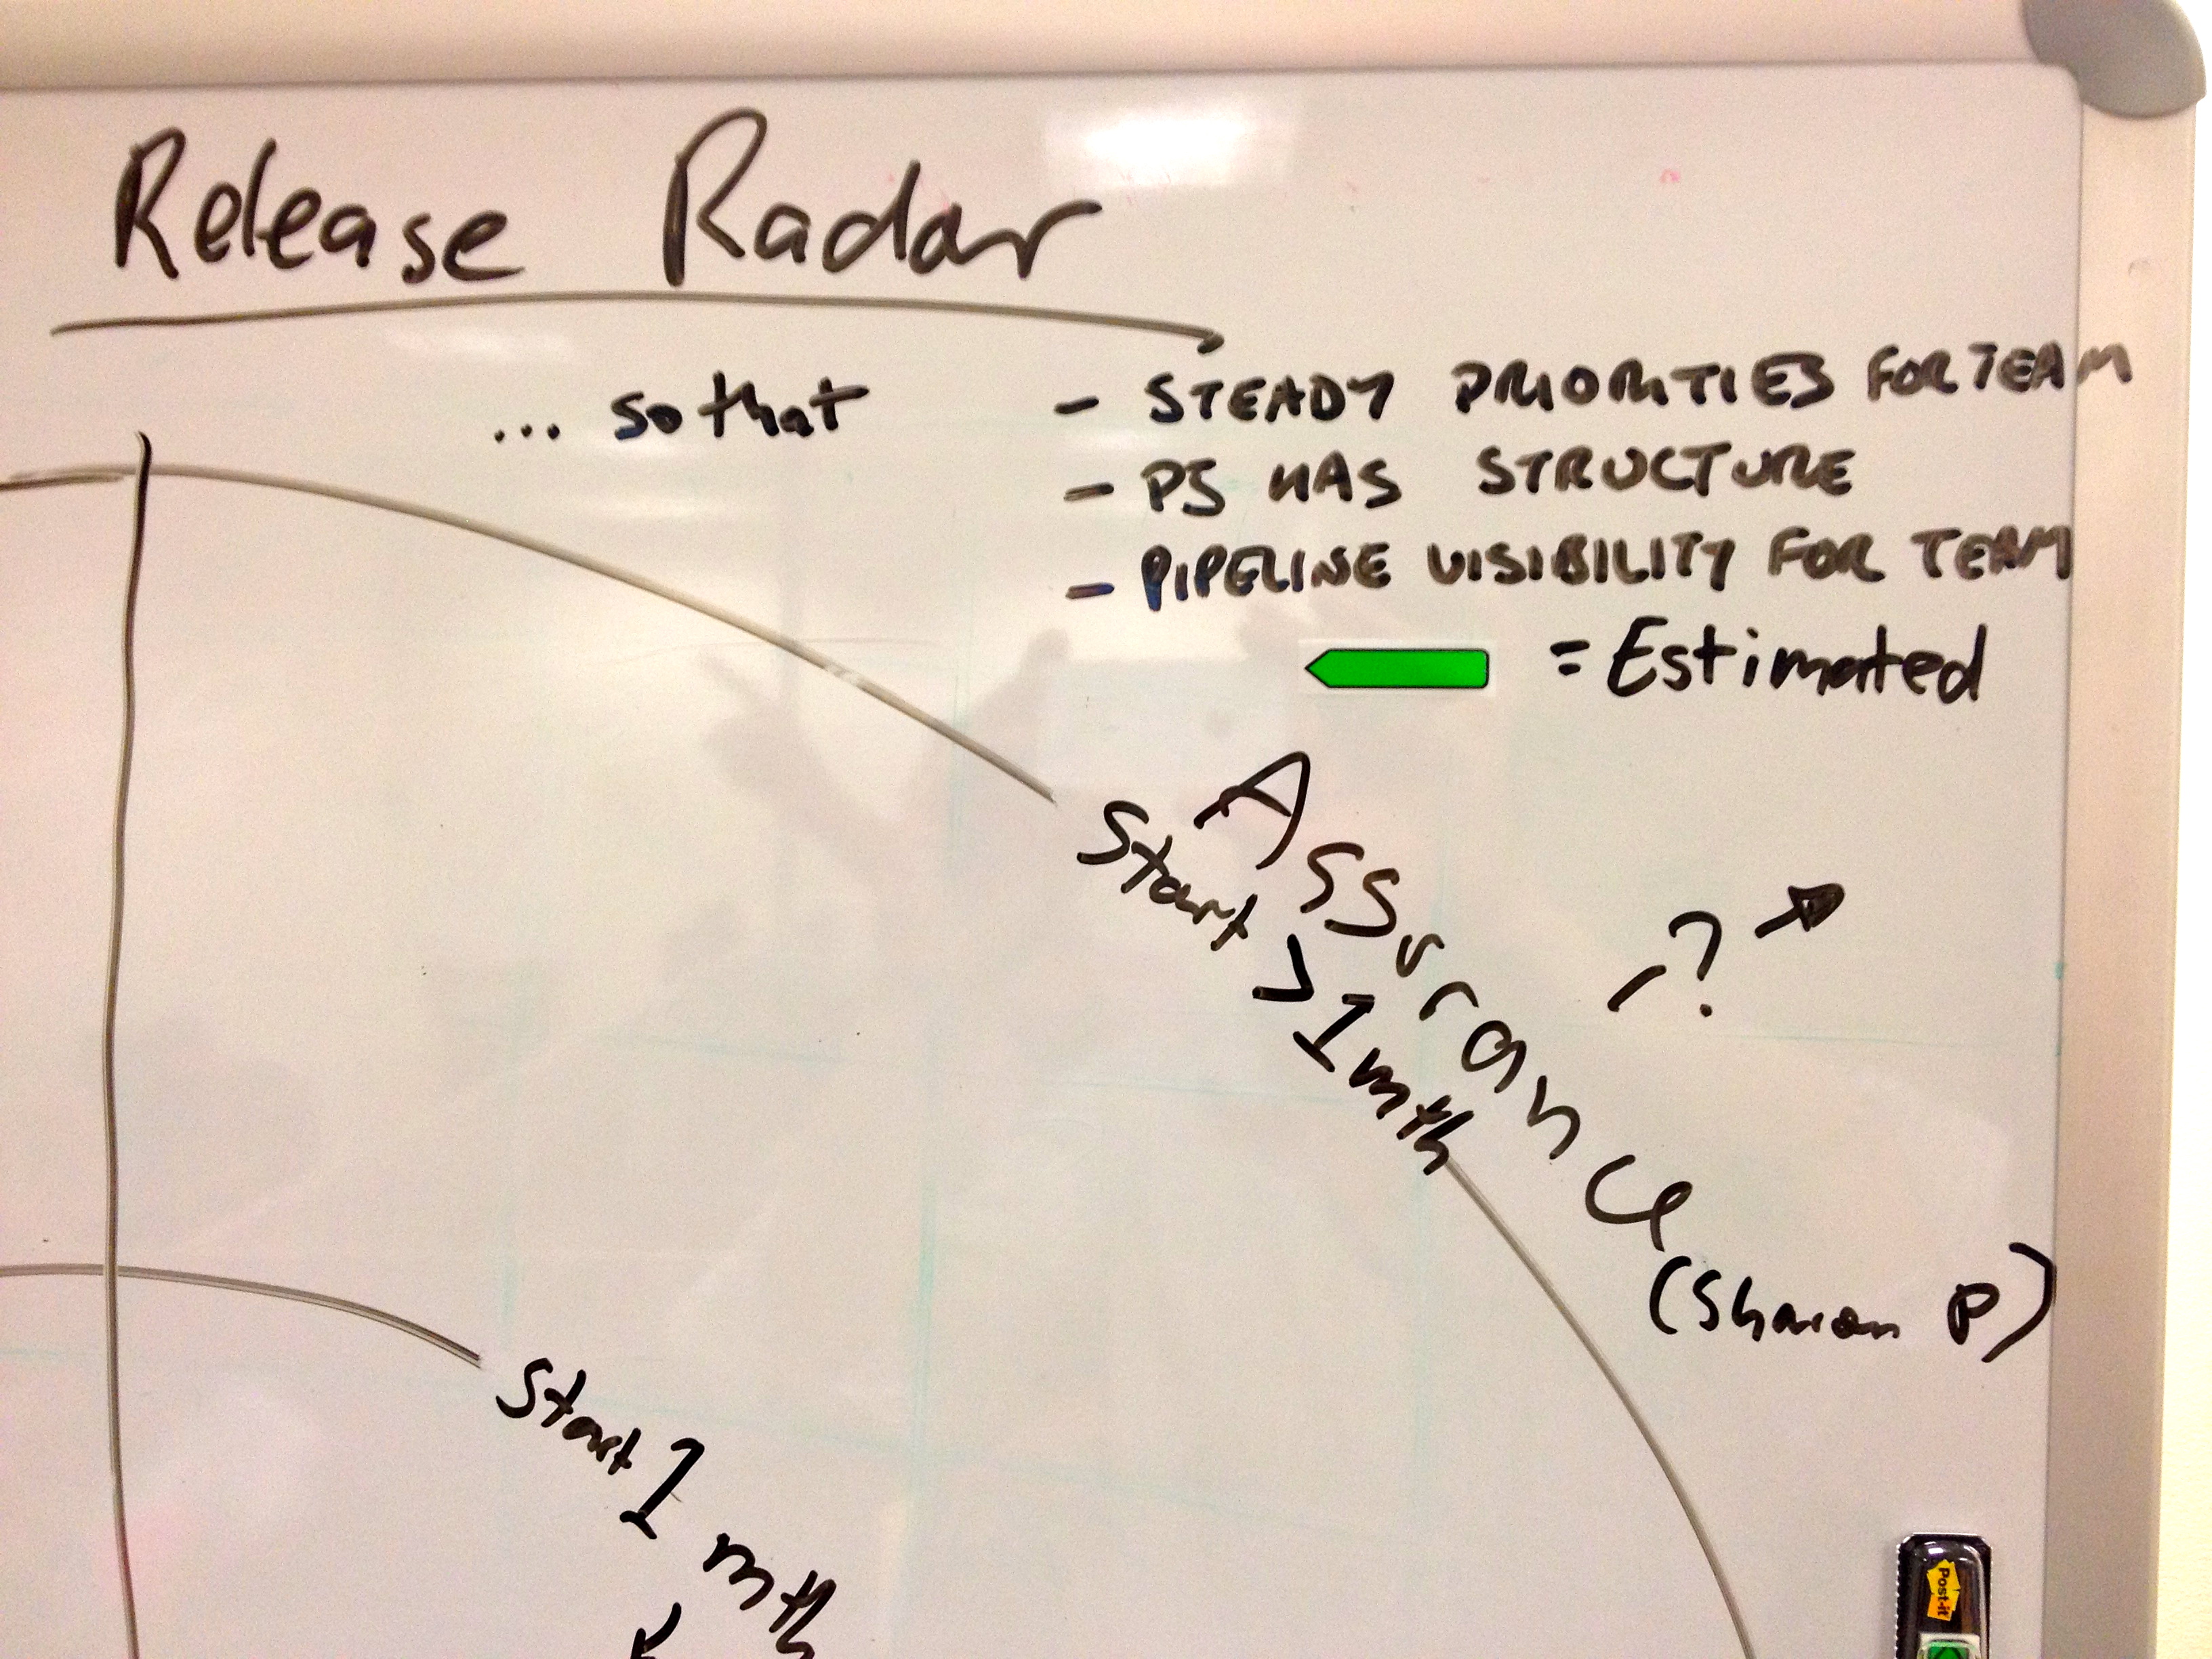 Release Radar
... so that
- STEADY PRIORITIES FOR TEAM
- PS HAS STRUCTURE
- PIPELINE VISIBILITY FOR TEAM
= Estimated
Assurance
Start > 1 mth
?
(Sharon P)
Start 1 mth
Post-it